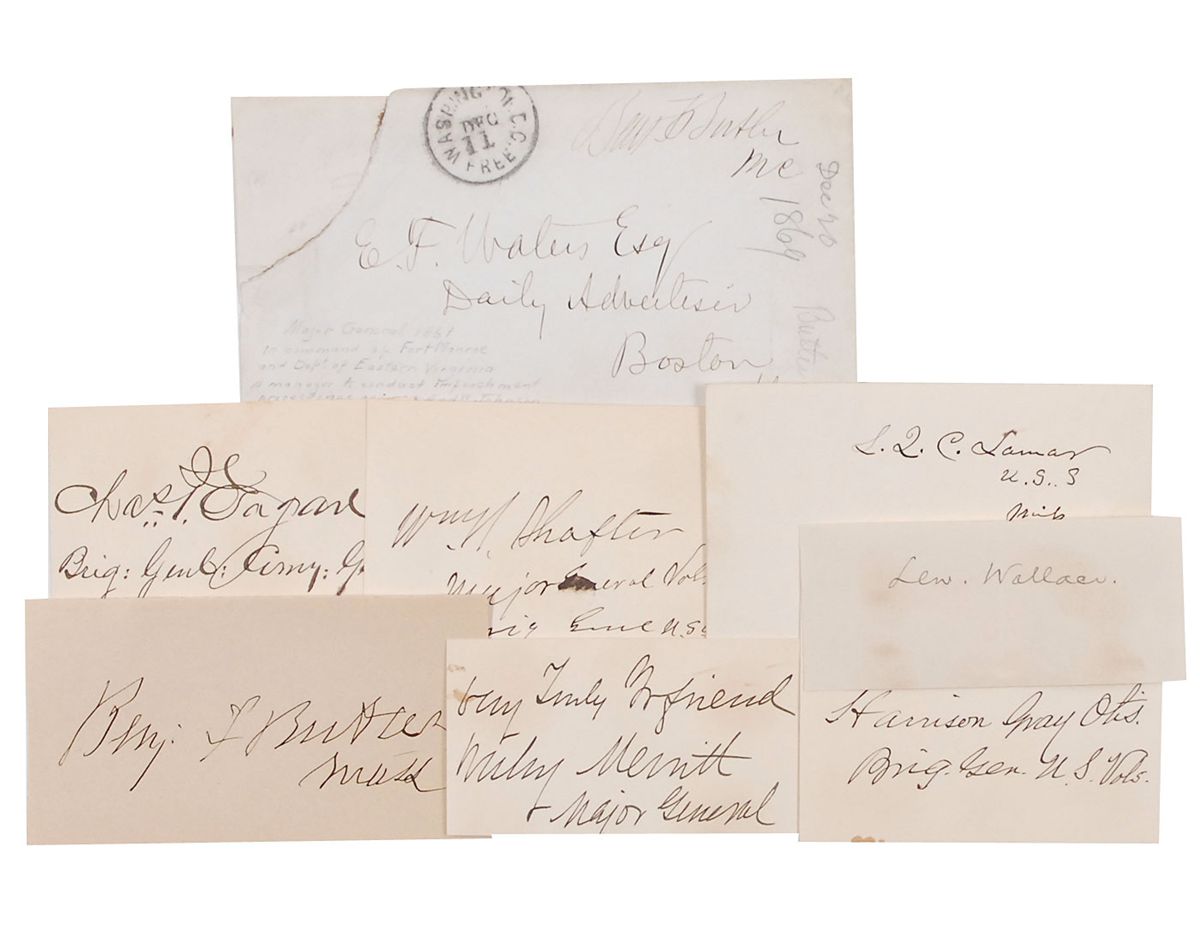 WASHINGTON. D.C.
DEC
11
FREE
Benj F Butler
MC
Dec 10
1869
Butler
E. F. Waters Esq
Daily Advertiser
Boston
Major General 1861
In command of Fort Monroe
and Dept of Eastern Virginia
a manager to conduct Impeachment
Chas.
Brig: Genl: Army:
Wm R. Shafter
Major General Vols
Brig Genl U.S.
L. Q. C. Lamar
U.S.S
Miss
Lew. Wallace.
Benj: F Butler
Mass
Very Truly Yr friend
Wesley Merritt
Major General
Harrison Gray Otis.
Brig. Gen. U. S. Vols.